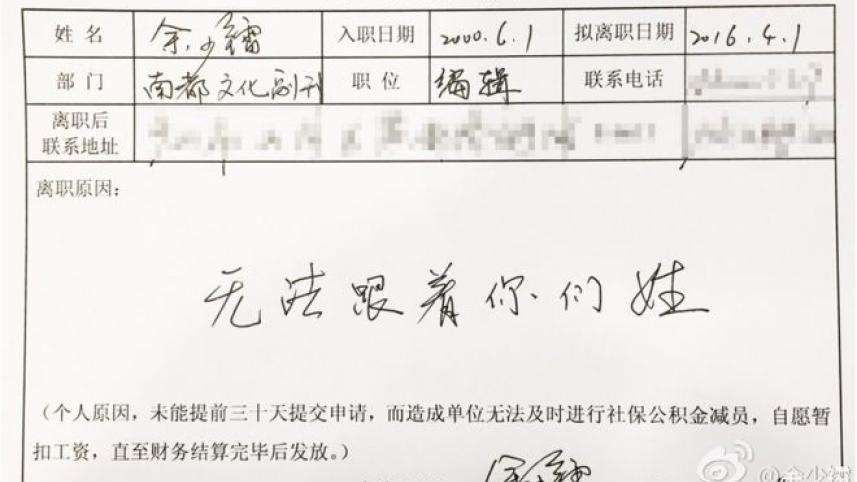 姓 名 余少镭 入职日期 2000.6.1 拟离职日期 2016.4.1
部 门 南都文化副刊 职 位 编辑 联系电话
离职后
联系地址
离职原因:
无法跟着你们姓
(个人原因,未能提前三十天提交申请,而造成单位无法及时进行社保公积金减员,自愿暂
扣工资,直至财务结算完毕后发放。)
余少镭
@余少镭